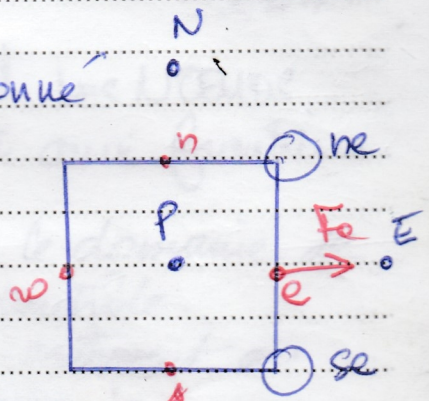 N
onné
n
ne
P
Fe
E
w
e
se
s